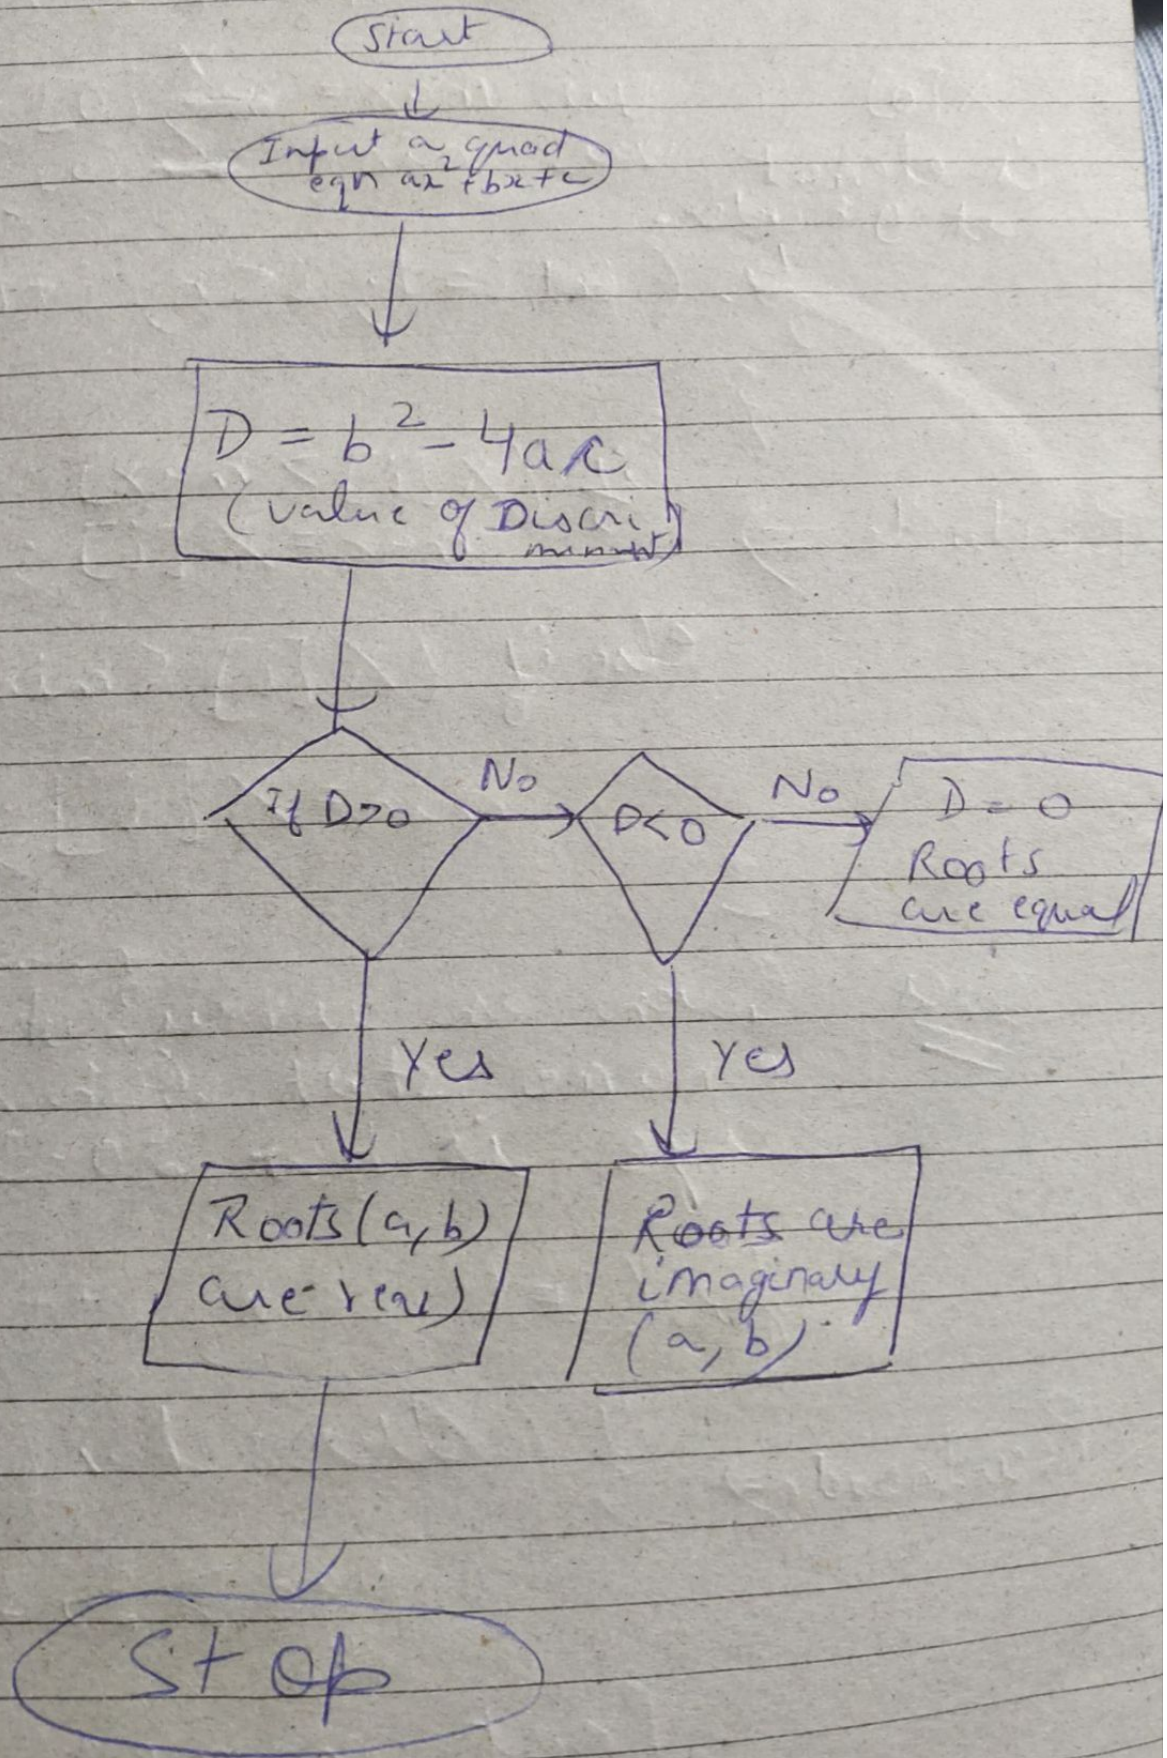 Start
Input a quad
eqn ax²+bx+c
D = b² - 4ac
(value of Discri
minant)
If D>0
No
D<0
No
D = 0
Roots
are equal
Yes
Yes
Roots (a,b)
are real
Roots are
imaginary
(a, b)
Stop